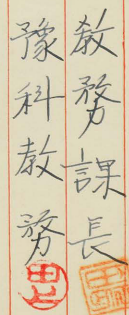 教務課長
豫科教務